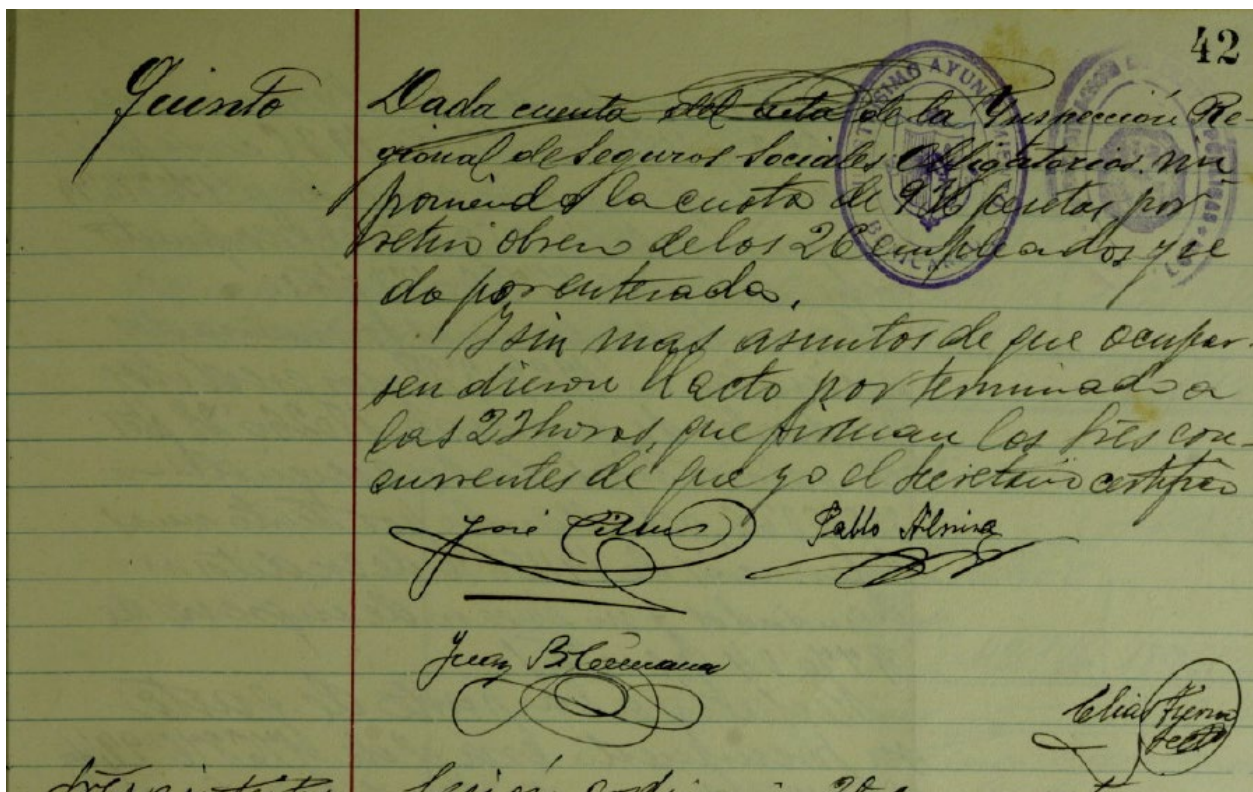 42
Quinto
Dada cuenta del acta de la Inspección Re-
gional de Seguros Sociales Obligatorios. im
poniendo la cuota de 936 pesetas por
retiro obrero de los 26 empleados que
da por enterada.
Y sin mas asuntos de que ocupar-
sen dieron el acto por terminado a
las 23 horas, que firman los tres con-
currentes de que yo el Secretario certifico
José Pablo Alsina
Juan B.
Elias
Sesión ordinaria 20